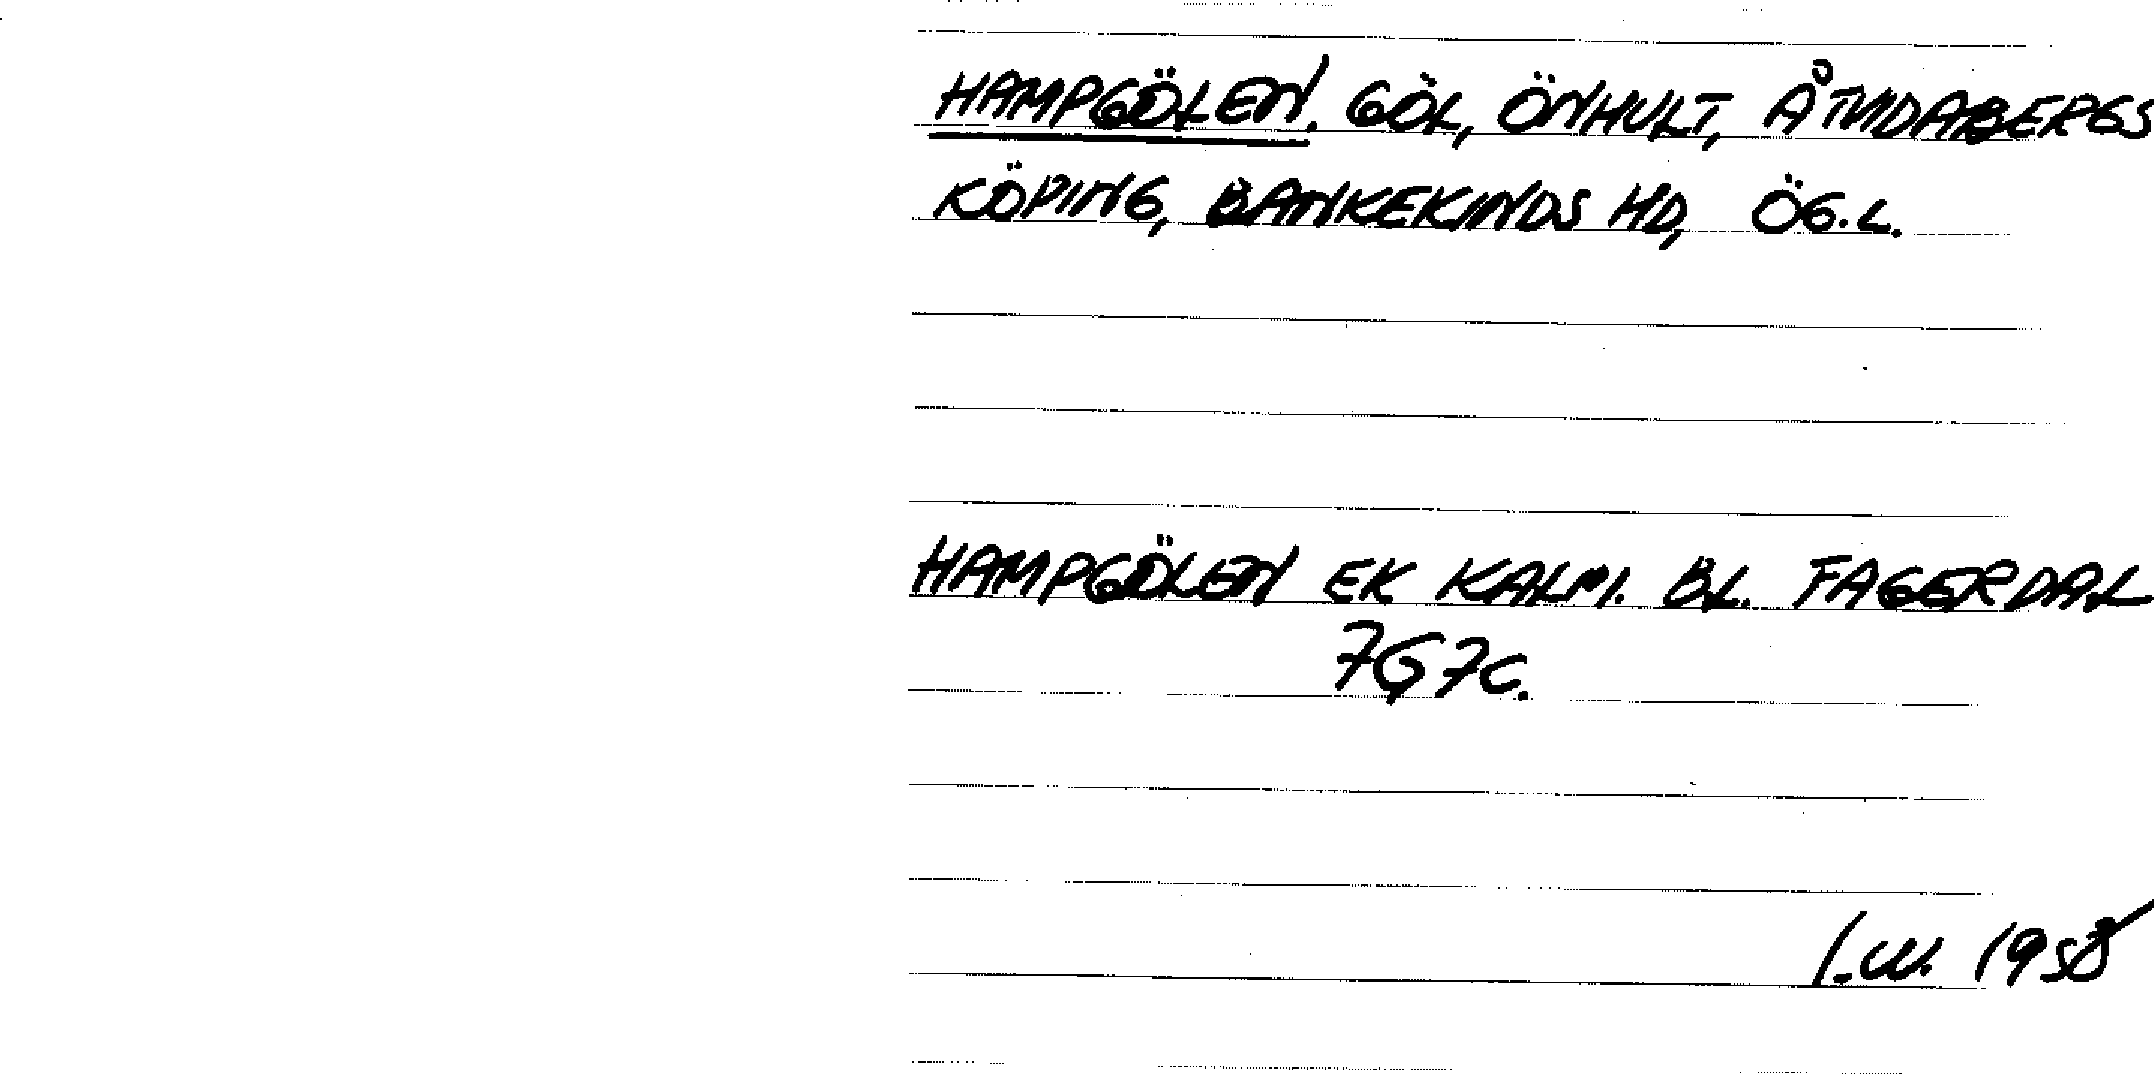 HAMPGÖLEN. GÖL, ÖNHULT, ÅTVIDABERGS
KÖPING, BANKEKINDS HD, ÖG.L.
HAMPGÖLEN EK KALM. BL. FAGERDAL
7G7C.
I.W. 1958